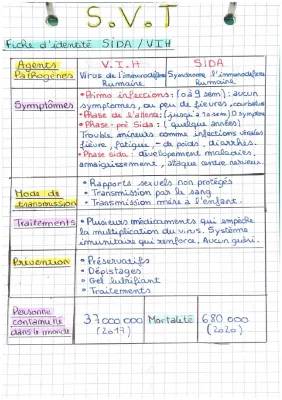 S.V.T
Fiche d'identité SIDA / VIH
Agents Pathogènes
V.I.H
Virus de l'immunodéficience Humaine
SIDA
Syndrome l'immunodéficience Humaine
Symptômes
• Primo infections: (0 à 9 sem): aucun
symptomes, ou peu de fievres, courbature
• Phase de l'attente: (jusqu'à 10 sem) 0 symptome
• Phase pré Sida: (quelque années)
Trouble mineurs comme infections virales
fièvre, fatigue, - de poids, diarrhés.
• Phase sida: développement maladies,
amaigrissement, attaque centre nerveux.
Mode de transmission
• Rapports sexuels non protégés
• Transmission par le sang
• Transmission mère a l'enfant.
Traitements
• Plusieurs médicaments qui empêche
la multiplication du virus. Système
imunitaire qui renforce. Aucun guéri.
Prevention
• Préservatifs
• Dépistages
• Gel lubrifiant
• Traitements
Personne
contaminé
dans le monde
37 000 000
(2017)
Mortalité
680 000
(2020)